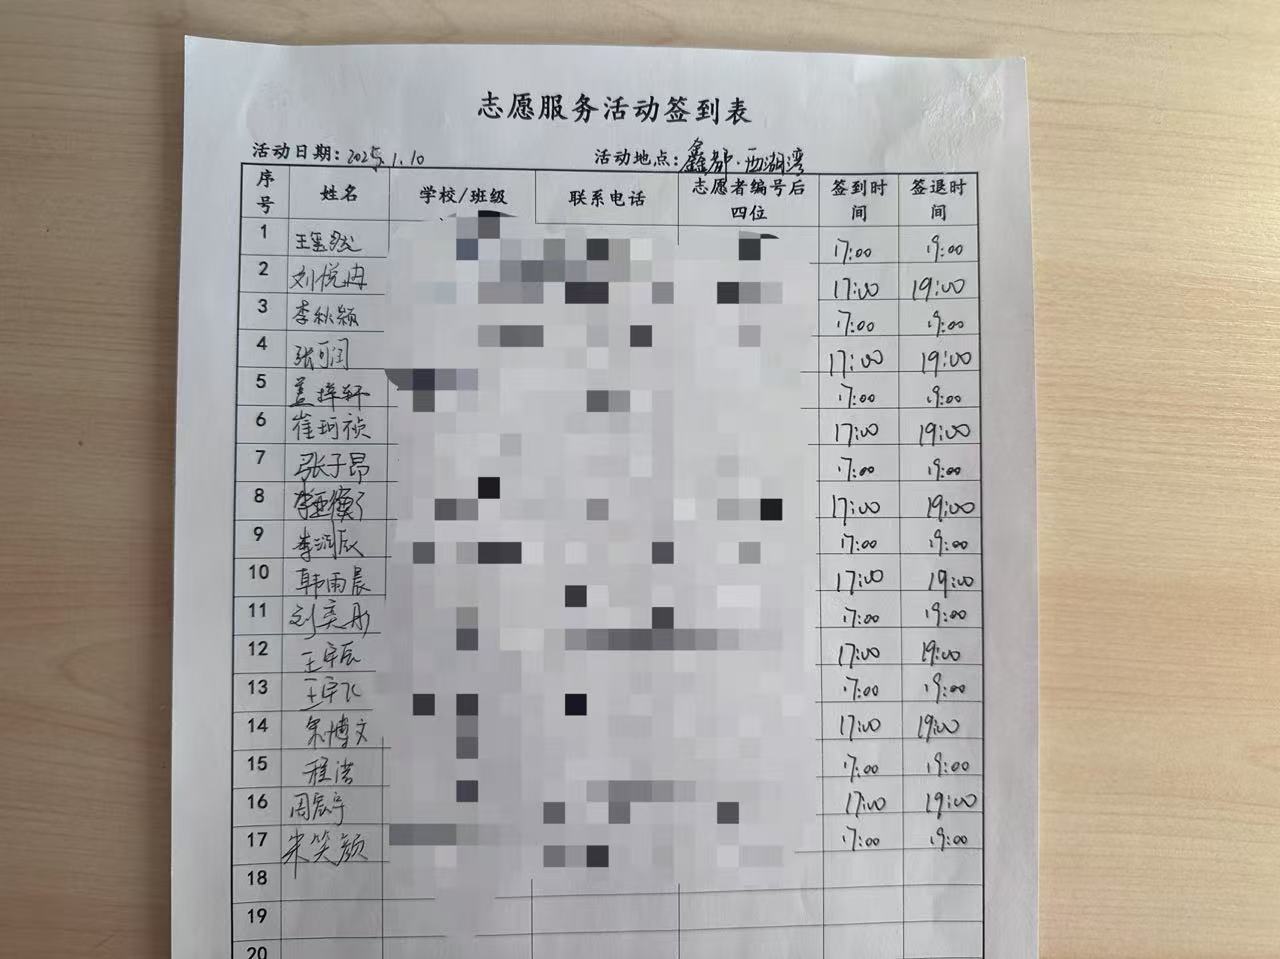 志愿服务活动签到表
活动日期：2025.1.10 活动地点：鑫都·西湖湾
序号 姓名 学校/班级 联系电话 志愿者编号后四位 签到时间 签退时间
1 17:00 19:00
2 刘悦冉 17:00 19:00
3 李秋颖 17:00 19:00
4 张可润 17:00 19:00
5 17:00 19:00
6 崔珂祯 17:00 19:00
7 张子昂 17:00 19:00
8 17:00 19:00
9 李润辰 17:00 19:00
10 韩雨晨 17:00 19:00
11 刘奕彤 17:00 19:00
12 王宇辰 17:00 19:00
13 王宇飞 17:00 19:00
14 朱博文 17:00 19:00
15 程浩 17:00 19:00
16 周宸宇 17:00 19:00
17 朱笑颜 17:00 19:00
18
19
20